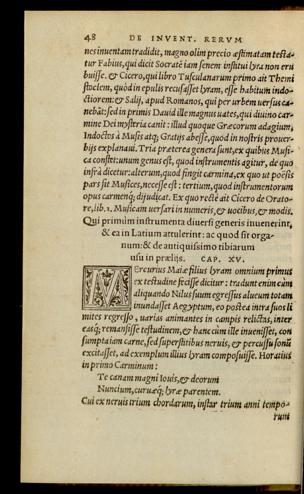 48 DE INVENT. RERVM
nes inuentam tradidit, magno olim precio æstimatam testa-
tur Fabius, qui dicit Socratē iam senem institui lyra non eru
buisse. & Cicero, qui libro Tusculanarum primo ait Themi
stoclem, quòd in epulis recusasset lyram, esse habitum indo-
ctiorem: & Salij, apud Romanos, qui per urbem uersus ca-
nebāt: sed in primis Dauid ille magnus uates, qui diuino car-
mine Dei mysteria canit: illud quoque Græcorum adagium,
Indoctos à Musis atq; Gratijs abesse, quod in nostris prouer-
bijs explanaui. Tria præterea genera sunt, ex quibus Musi-
ca constet: unum genus est, quod instrumentis agitur, de quo
infrà dicetur: alterum, quod fingit carmina, ex quo ut poësis
pars sit Musices, necesse est: tertium, quod instrumentorum
opus carmenq; dijudicat. Ex quo rectè ait Cicero de Orato-
re, lib. 1. Musicam uersari in numeris, & uocibus, & modis.
Qui primùm instrumenta diuersi generis inuenerint,
& ea in Latium attulerint: ac quod sit orga-
num: & de antiquissimo tibiarum
usu in prælijs. CAP. XV.
Mercurius Maiæ filius lyram omnium primus
ex testudine fecisse dicitur: tradunt enim cùm
aliquando Nilus suum egressus alueum totam
inundasset Aegyptum, eo postea intra suos li
mites regresso, uarias animantes in campis relictas, inter
easq; remansisse testudinem, & hanc cùm ille inuenisset, con
sumpta iam carne, sed superstitibus neruis, & percussu sonū
excitasset, ad exemplum illius lyram composuisse. Horatius
in primo Carminum:
Te canam magni Iouis, & deorum
Nuncium, curuæq; lyræ parentem.
Cui ex neruis trium chordarum, instar trium anni tempo-
rum